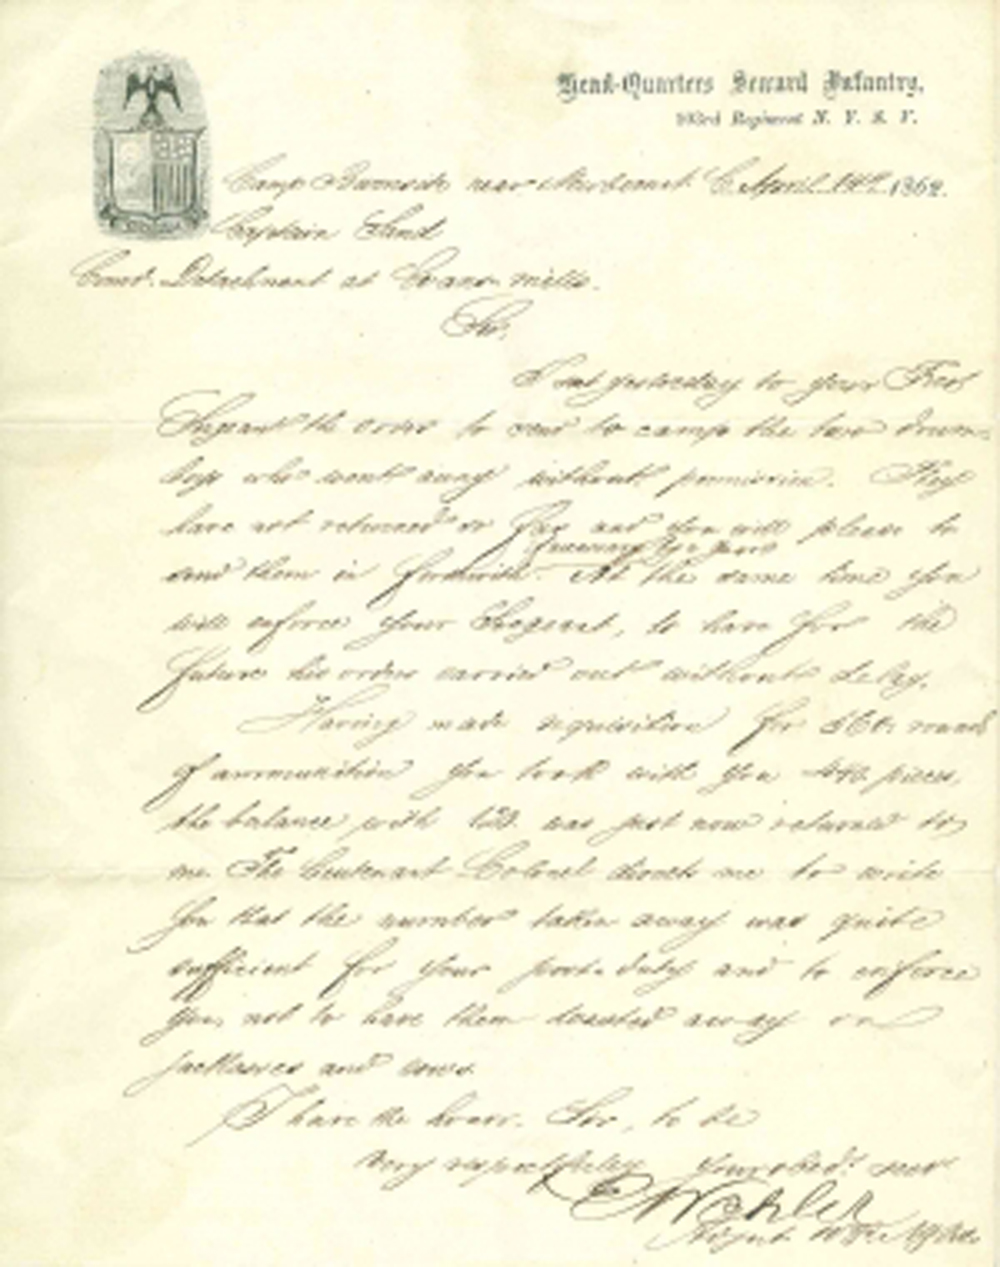 Head-Quarters Seward Infantry,
103rd Regiment N. Y. S. V.
Camp Burnside near Newbern N. C. April 14th 1862.
Captain Sand
Comd. Detachment at Evans mills.
Sir,
I sent yesterday to your First
Sergeant the order to send to camp the two drum-
boys who went away without permission. They
have not returned so far and you will please to
send them in forthwith. At the same time you
will enforce your Sergeant, to have for the
future his orders carried out without delay.
Having made requisition for 560 rounds
of ammunition you took with you 440 pieces,
the balance with 120 was just now returned to
me. The Lieutenant Colonel directs me to write
you that the number taken away was quite
sufficient for your post-duty and to enforce
you, not to have them wasted away on
jackasses and cows.
I have the honor, Sir, to be
very respectfully your obedt. servt